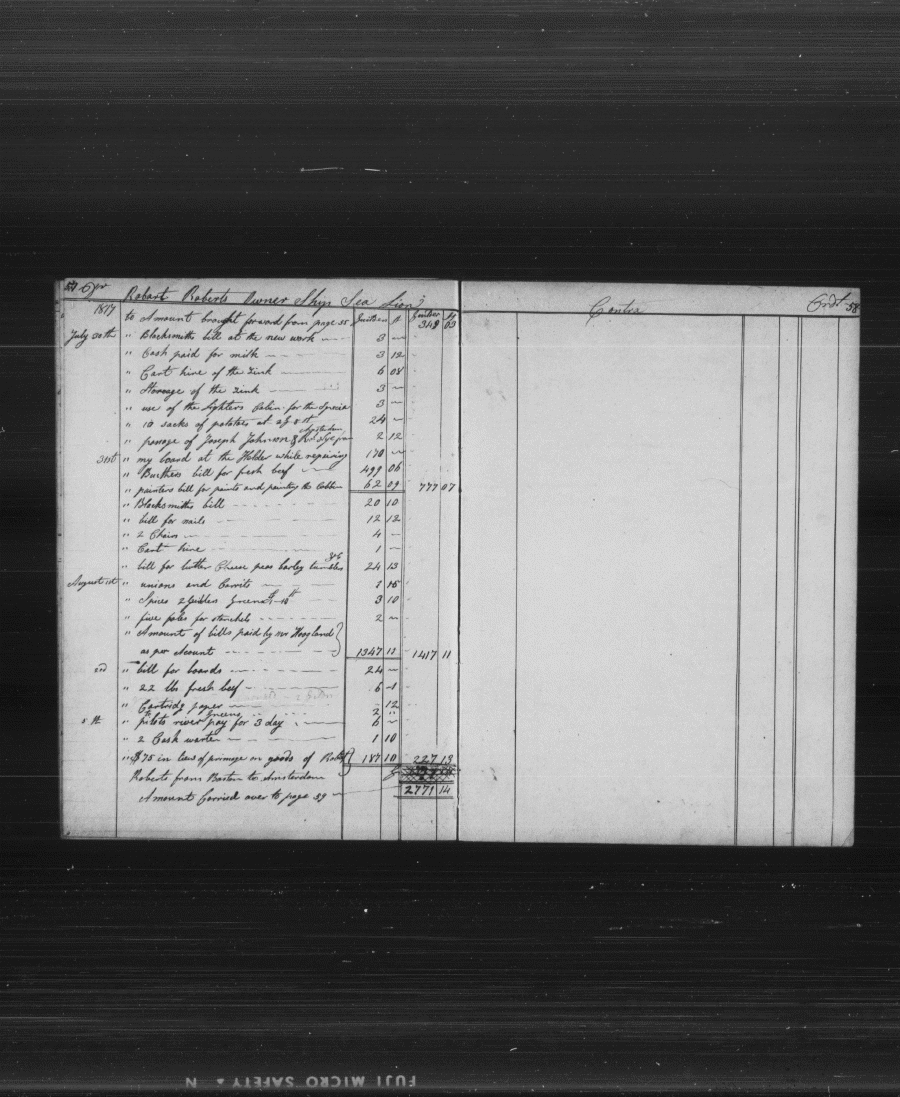 57 Dr Robart Roberts Owner Ship Sea Lion
1817 to Amount brought forward from page 55 Guilders st Guilders 349 st 03
July 30th " Blacksmiths bill at the new work 3 —
" Cash paid for milk 3 12
" Cart hire of the Zink 6 04
" Storeage of the Zink 3 —
" use of the lighters Cabin for the 3 —
" 10 sacks of potatoes at 2 8 st 24 —
" passage of Joseph Johnson & Amsterdam 2 12
31st " my board at the Helder while repairing 170 —
" Buchers bill for fresh beef 499 06
" painters bill for paints and painting the Cabbin 62 09 777 07
" Blacksmiths bill 20 10
" bill for nails 12 12
" 2 Chairs 4 —
" Cart hire 1 —
" bill for butter Cheese peas barley tumbles &c 24 13
August 1st " unions and Carrits 1 15
" Spices 3 10
" five poles for stenchels 2 —
" Amount of bills paid by mr Hoogland
as per Acount 1347 11 1417 11
2nd " bill for boards 24 —
" 22 lbs fresh beef 6 1
" Cartridg paper - 12
2 "
8th " pilots river pay for 3 day 6 —
" 2 Cask warter 1 10
" $75 in lew of primage on goods of Robt 187 10 227 13
Roberts from Boston to Amsterdam
Amount Carried over to page 59 2771 14
Contra Crdt 58
FUJI MICRO SAFETY N